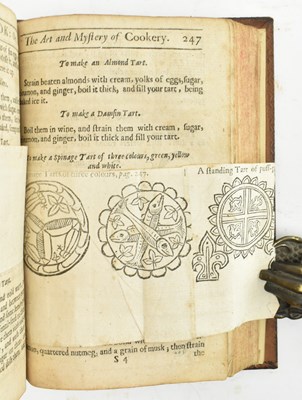 The Art and Mystery of Cookery. 247
To make an Almond Tart.
Strain beaten almonds with cream, yolks of eggs, sugar,
cinnamon, and ginger, boil it thick, and fill your tart, being
baked ice it.
To make a Damson Tart.
Boil them in wine, and strain them with cream, sugar,
cinnamon, and ginger, boil it thick and fill your tart.
To make a Spinage Tart of three colours, green, yellow
and white.
Tart of three colours, pag. 247.
A standing Tart of puff-p
quartered nutmeg, and a grain of musk; then strain
S 4 the